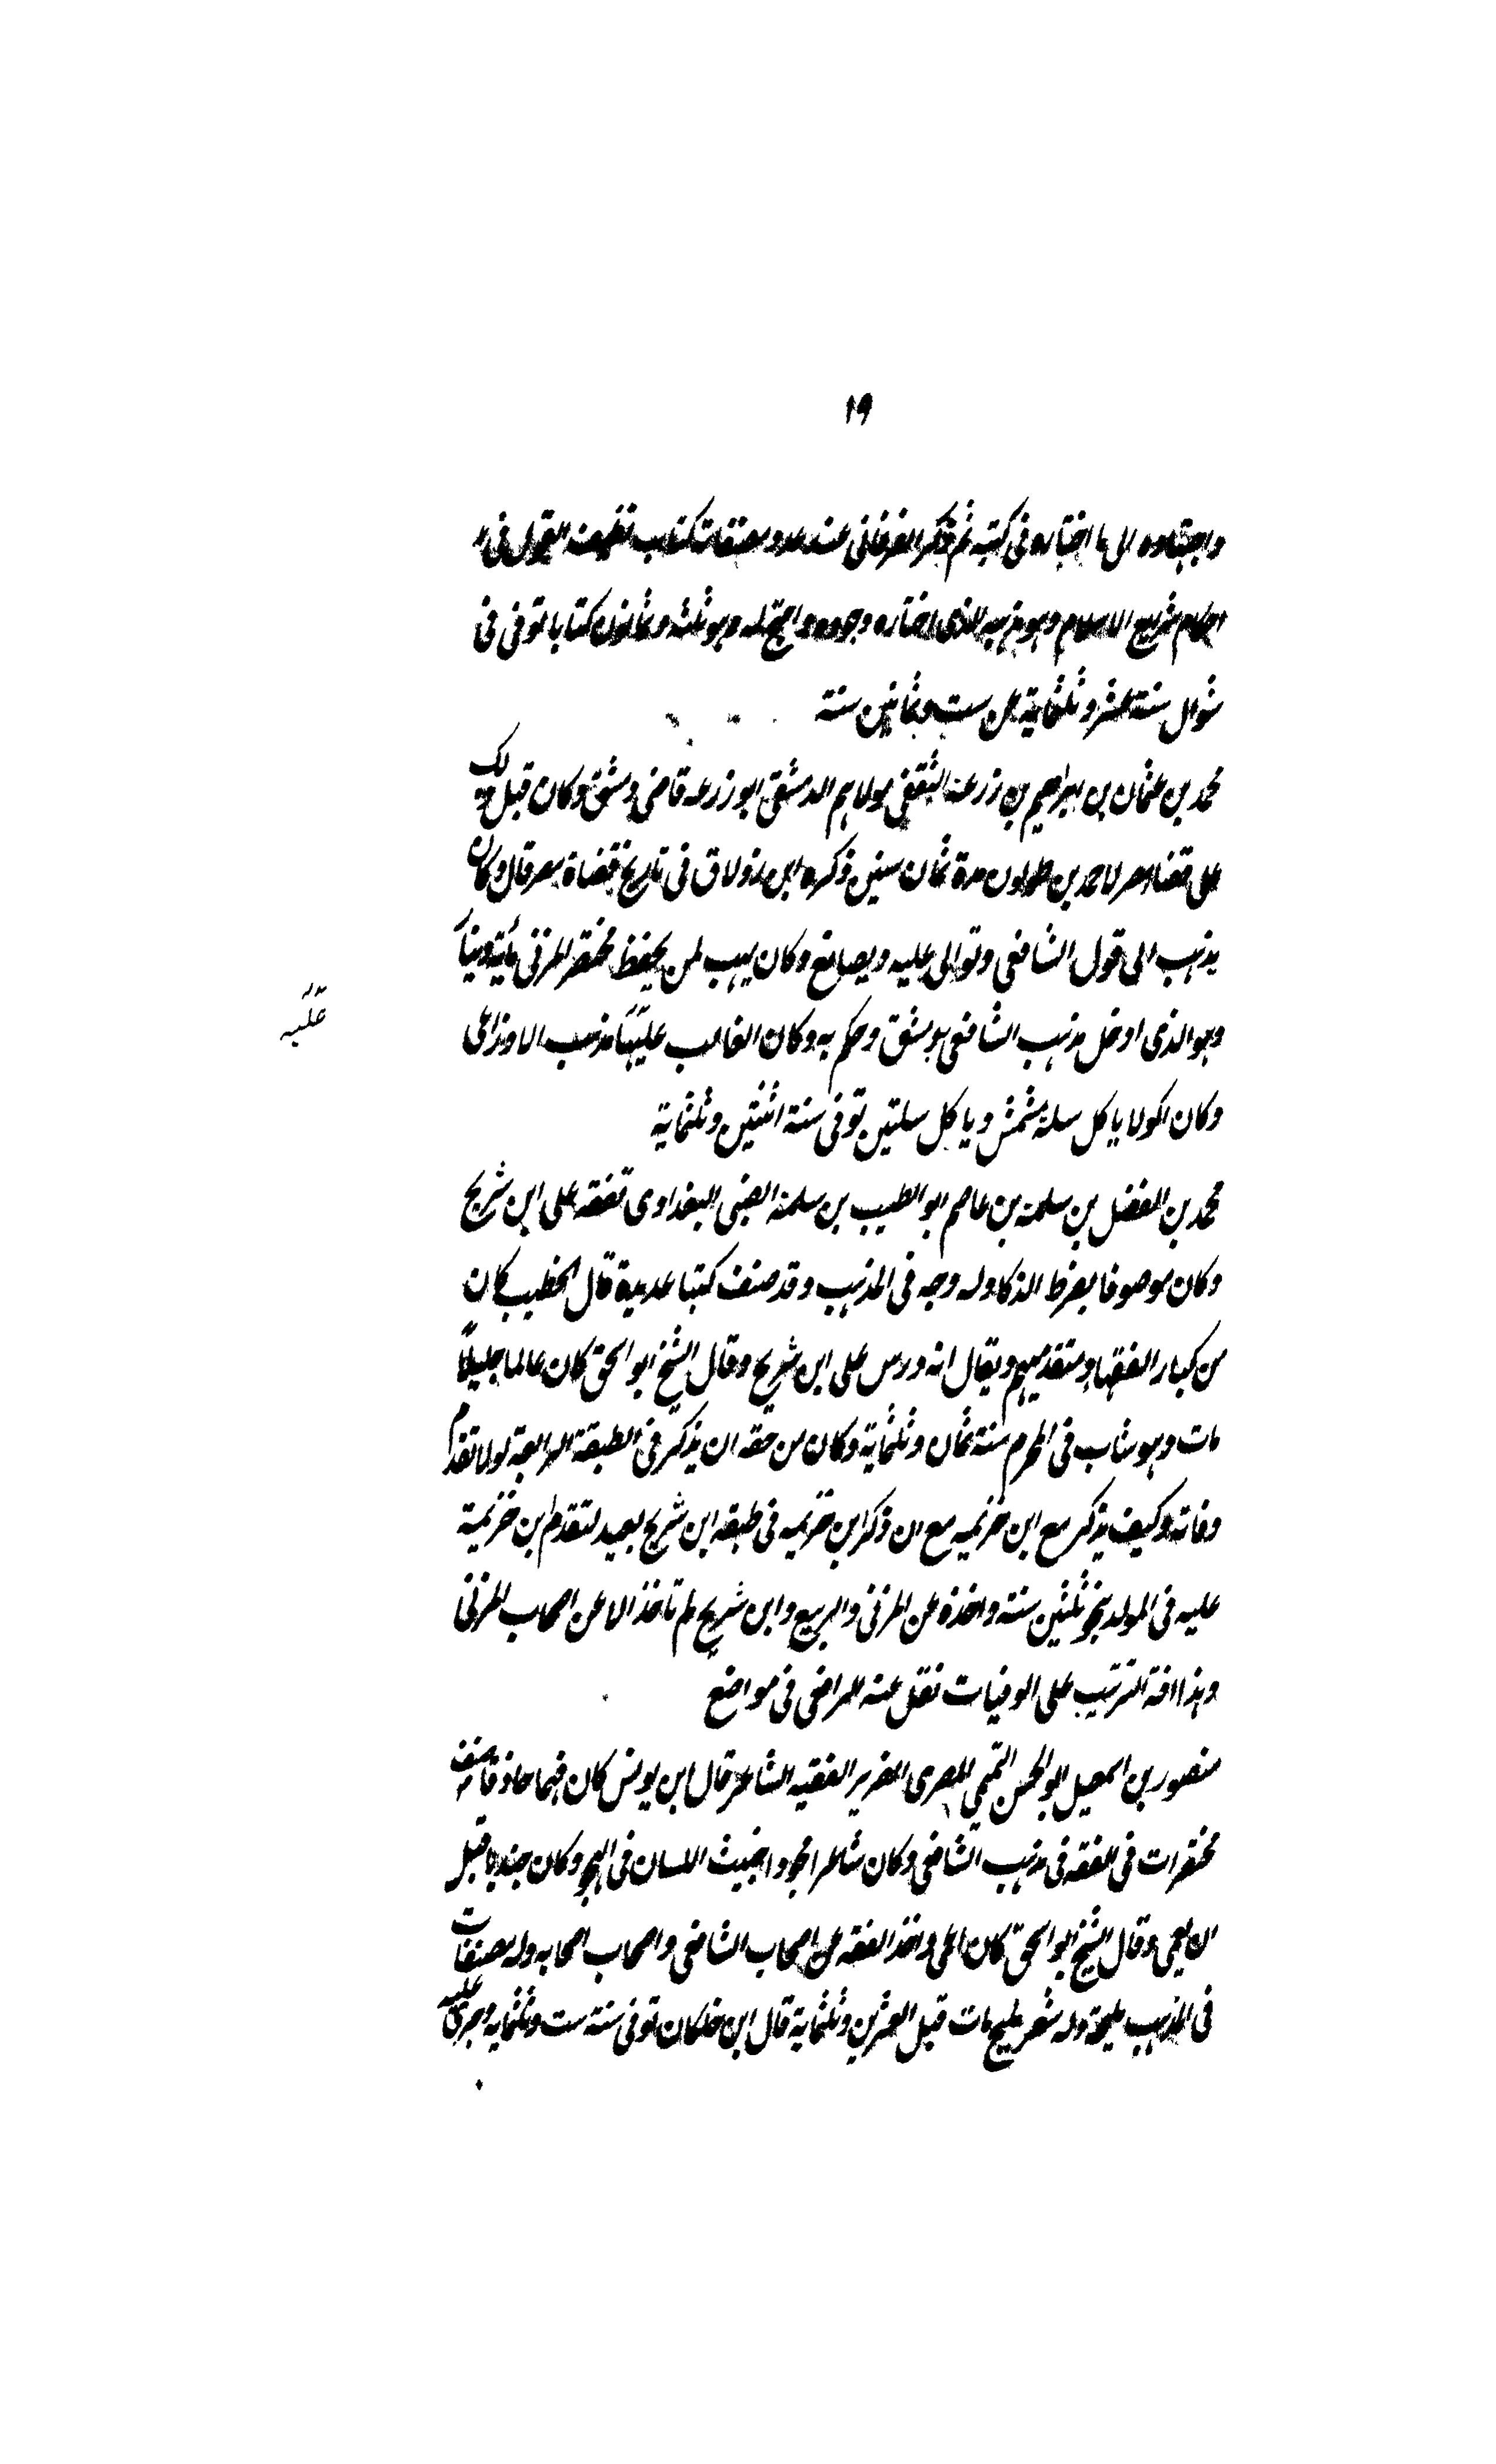 ١٩
واجتهاده الى ما اختاره فى كتبه ثم ذكر الفرغانى عند عدد مصنفاته كتاب لطيف القول فى
احكام شرايع الاسلام وهو مذهبه الذى اختاره وجوده واحتج له وهو ثلثة وثمانون كتابا توفى فى
شوال سنة عشر وثلثماية عن ست وثمانين سنة
محمد بن عثمان بن ابراهيم بن زرعة الثقفى مولاهم الدمشقى ابو زرعه قاضى دمشق وكان قبل ذلك
على قضاء مصر لاحمد بن طولون مدة ثمان سنين ذكره ابن زولاق فى تاريخ قضاة مصر قال وكان
يذهب الى قول الشافعى وتوالى عليه ويصانع وكان يهب لمن يحفظ مختصر المزنى مأية دينار
وهو الذى ادخل مذهب الشافعى بدمشق وحكم به وكان الغالب عليها مذهب الاوزاعى
عليه
وكان اكولا ياكل سلة مشمش وياكل سلتين توفى سنة اثنتين وثلثماية
محمد بن المفضل بن سلمة بن عاصم ابو الطيب بن سلمة الضبى البغدادى تفقه على ابن شريح
وكان موصوفا بفرط الذكا وله وجه فى المذهب وقد صنف كتبا عديدة قال الخطيب كان
من كبار الفقهاء ومتقدميهم ويقال انه درس على ابن شريح وقال الشيخ ابو اسحق كان عالما جليلا
مات وهو شاب فى المحرم سنة ثمان وثلثماية وكان من حقه ان يذكر فى الطبقة الرابعة لولا تقدم
وفاته وكيف يذكر مع ابن خزيمه مع ان ذكر ابن خزيمه فى طبقه ابن شريح بعيد لتقدم ابن خزيمة
عليه فى المولد بنحو ثلثين سنة واخذه عن المزنى والربيع وابن شريح لم تاخذ الا عن اصحاب المزنى
وهذا افة الترتيب على الوفيات نقل عنه الرافعى فى مواضع
منصور بن اسمعيل ابو الحسن التميمى المصرى الضرير الفقيه الشاعر قال ابن يونس كان فهما حاذقا صنف
مختصرات فى الفقه فى مذهب الشافعى وكان شاعرا مجودا خبيث اللسان فى الهجو وكان جنديا قبل
ان يعمى وقال الشيخ ابو اسحق كان اعمى واخذ الفقه عن اصحاب الشافعى واصحاب اصحابه وله مصنفات
فى المذهب مليحة وله شعر مليح مات قبل العشرين وثلثماية قال ابن خلكان توفى سنة ست وثلثمايه وجرى عليه